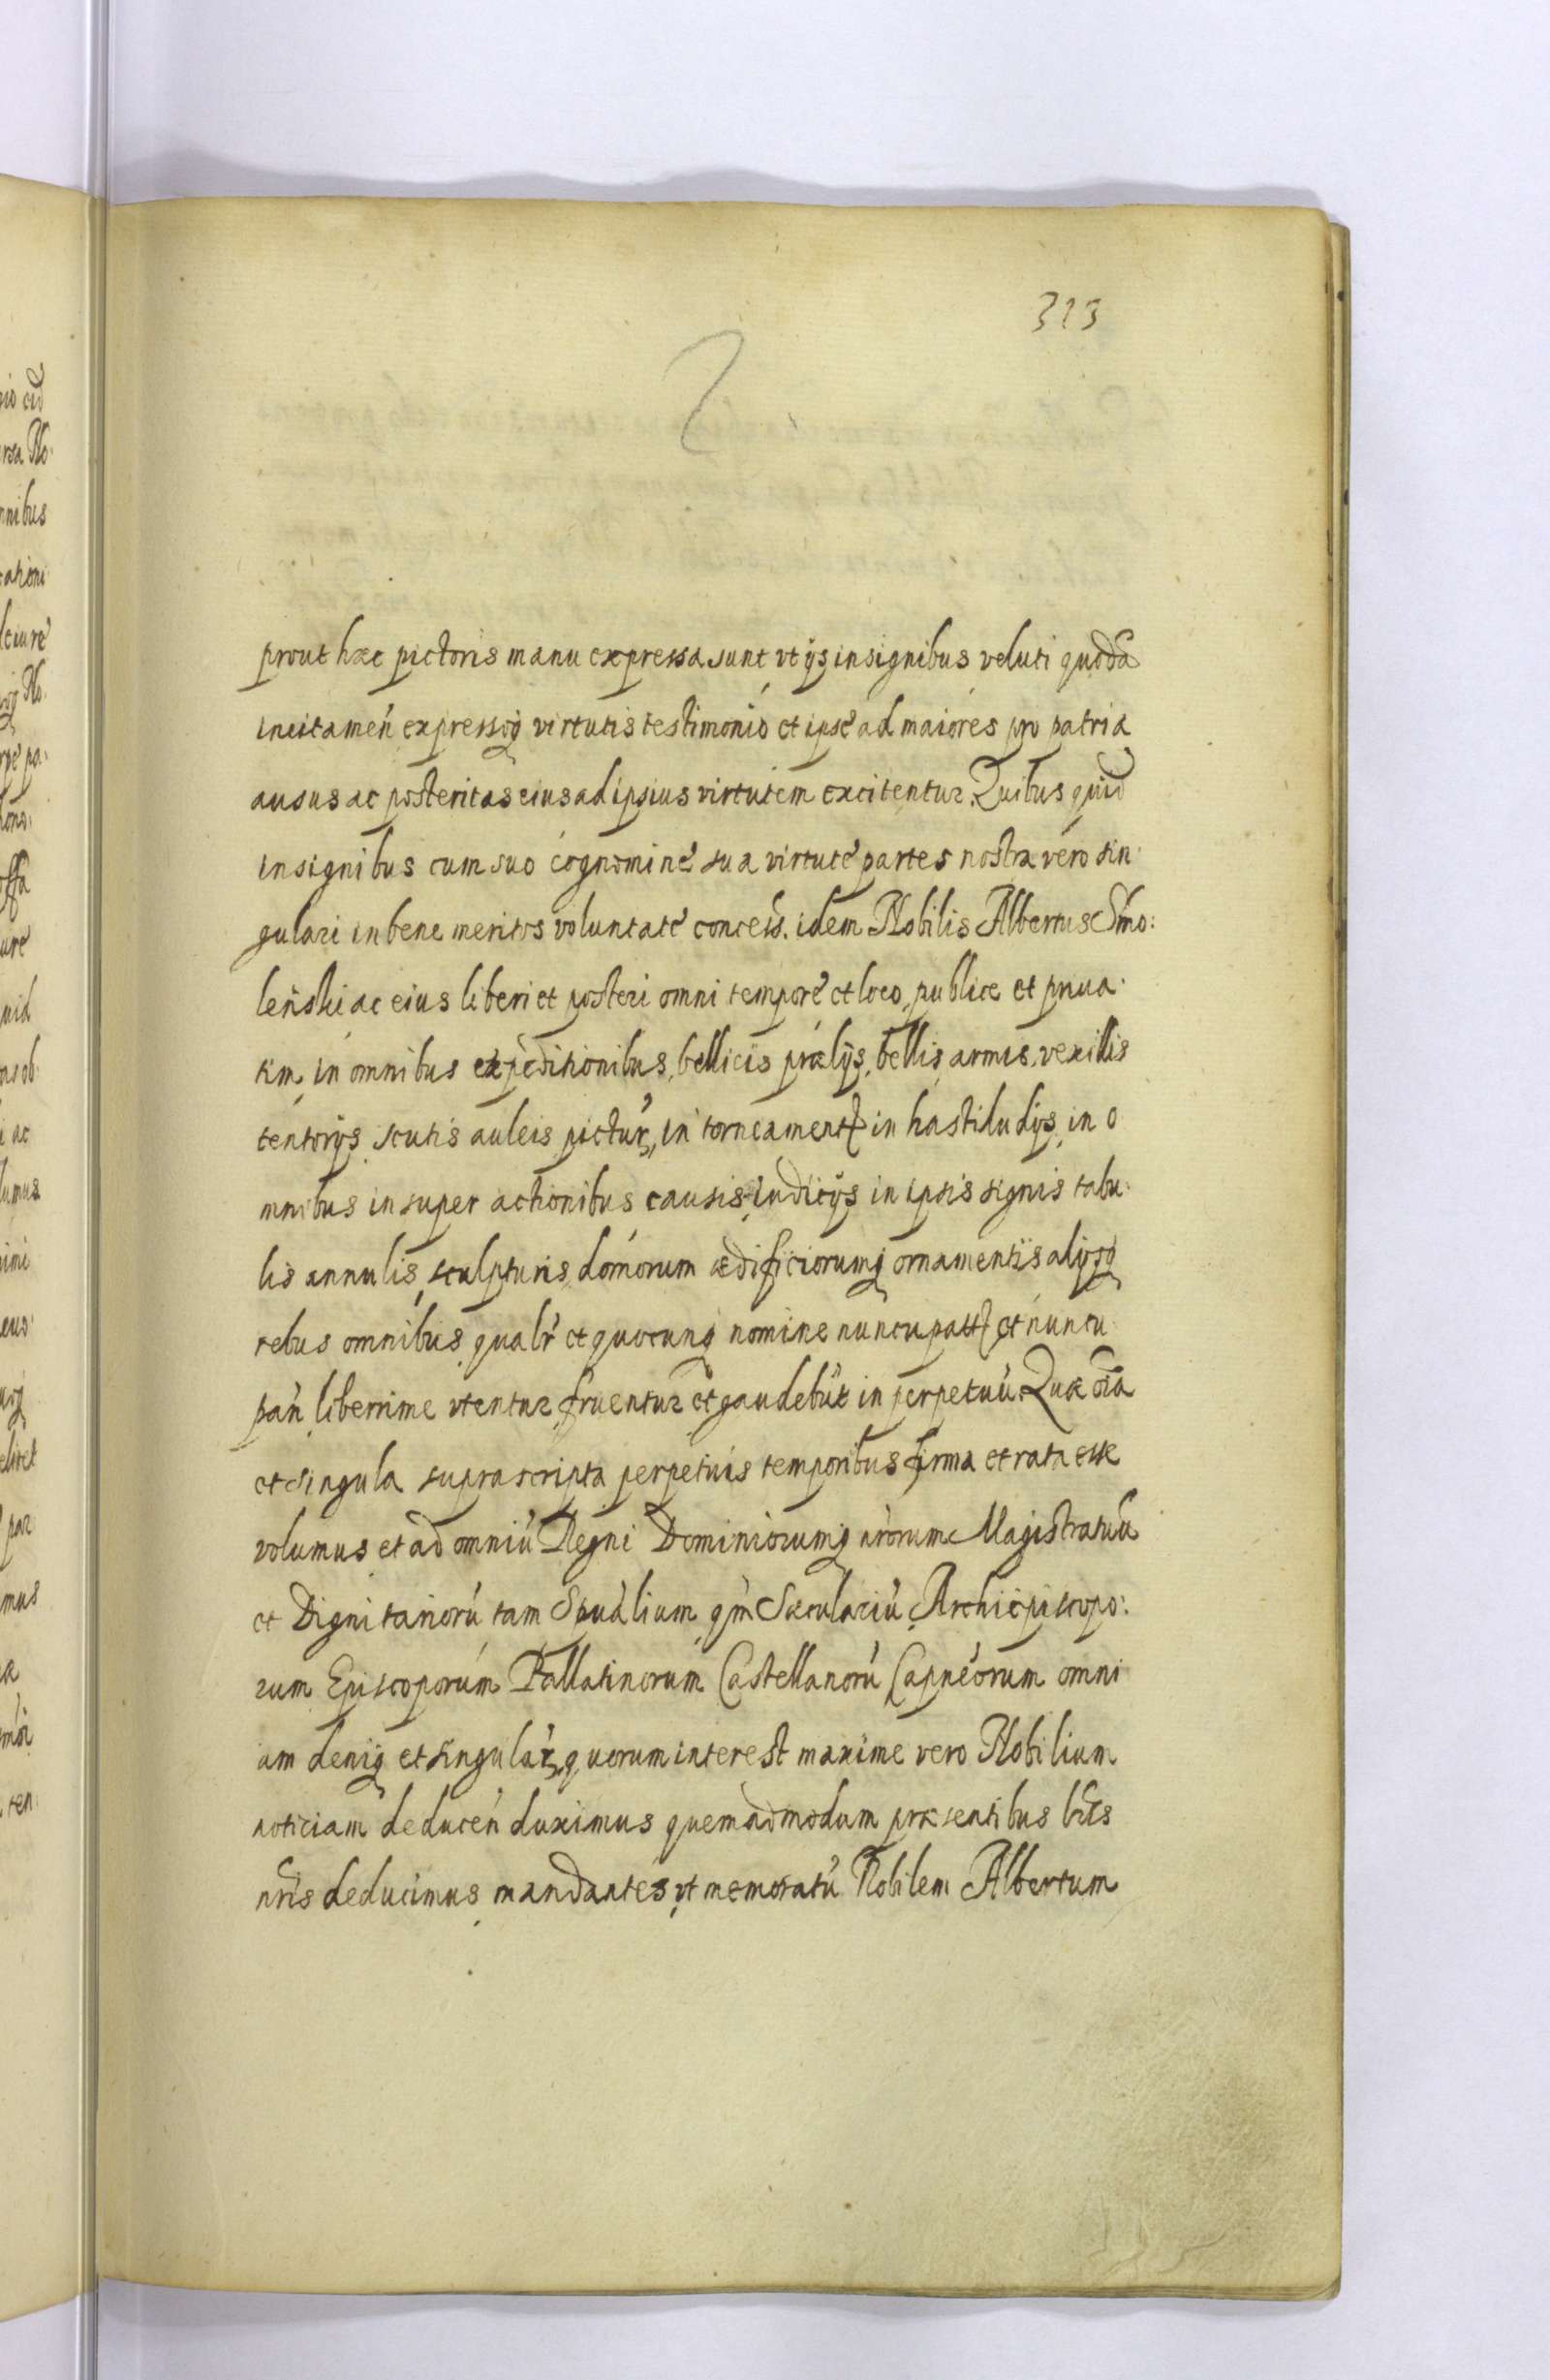 323
prout hæc pictoris manu expressa sunt vt ijs insignibus veluti quodã
incitameñ expressoq virtutis testimonio et ipse ad maiores pro patria
ausus ac posteritas eius ad ipsius virtutem excitentur. Quibus quid
insignibus cum suo cognomine sua virtute partes nostra vero sin:
gulari in bene meritos voluntate concess. idem Nobilis Albertus Smo:
leński ac eius liberi et posteri omni tempore et loco, publice et priua:
tim, in omnibus expeditionibus, bellicis prælijs, bellis, armis, vexillis
tentorijs scutis auleis pictur, in torneament in hastiludijs, in o
mnibus insuper actionibus causis, iudicijs in ipsis signis tabu:
lis annulis, sculpturis, domorum ædificiorumq ornamentis alijsq
rebus omnibus, qualr et quocunq nomine nuncupatt et nuncu
pań, liberrime vtentur fruentur et gaudebūt in perpetuū. Quæ oīa
et singula suprascripta perpetuis temporibus firma et rata esse
volumus et ad omniū Regni Dominiorumq nrorum Magistratuū
et Dignitariorū tam Spualium, qm Sæculariū, Archiepiscopo:
rum Episcoporum Pallatinorum Castellanorū Capneorum omni
um deniq et singular, quorum interest maxime vero Nobilium
noticiam deduceń duximus quemadmodum præsentibus lris
nris deducimus, mandantes, vt memoratū Nobilem Albertum